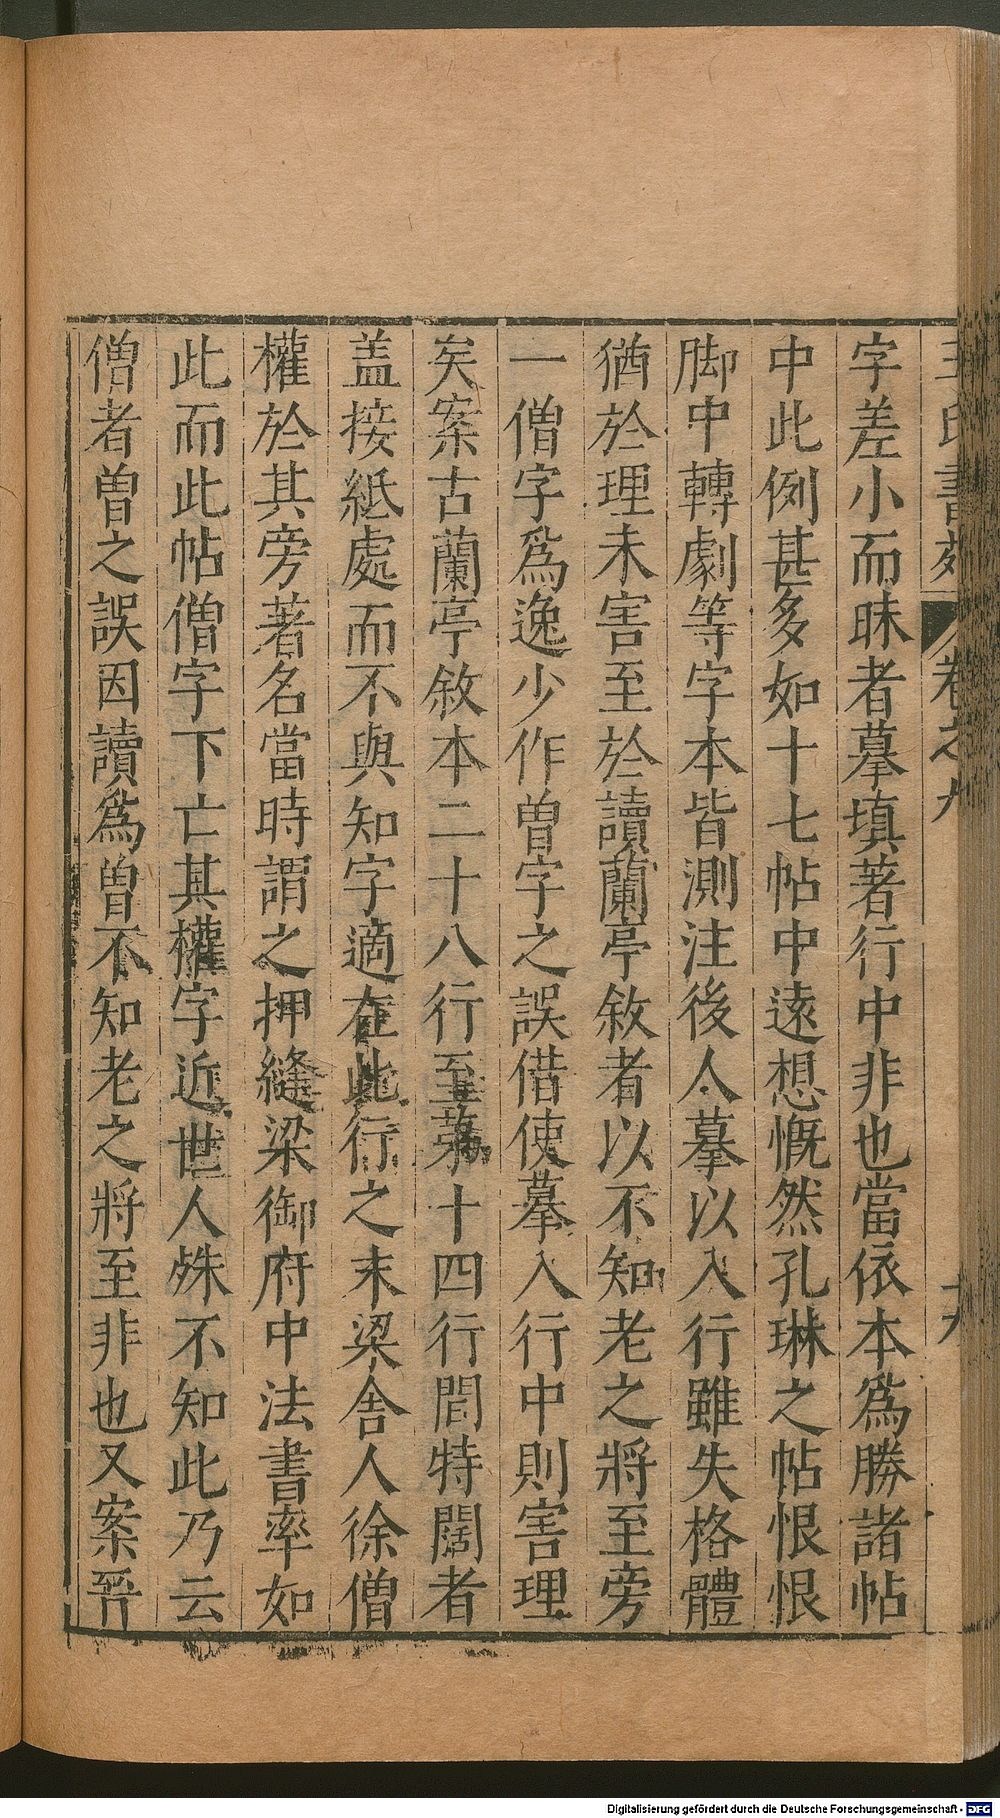 王氏書苑 卷之九 十九
字差小而昧者摹填著行中非也當依本爲勝諸帖
中此例甚多如十七帖中遠想慨然孔琳之帖恨恨
脚中轉劇等字本皆測注後人摹以入行雖失格體
猶於理未害至於讀蘭亭敘者以不知老之將至旁
一僧字爲逸少作曽字之誤借使摹入行中則害理
矣案古蘭亭敘本二十八行至第十四行間特闊者
盖接紙處而不與知字適在此行之末梁舍人徐僧
權於其旁著名當時謂之押縫梁御府中法書率如
此而此帖僧字下亡其權字近世人殊不知此乃云
僧者曽之誤因讀爲曽不知老之將至非也又案晉
Digitalisierung gefördert durch die Deutsche Forschungsgemeinschaft - DFG